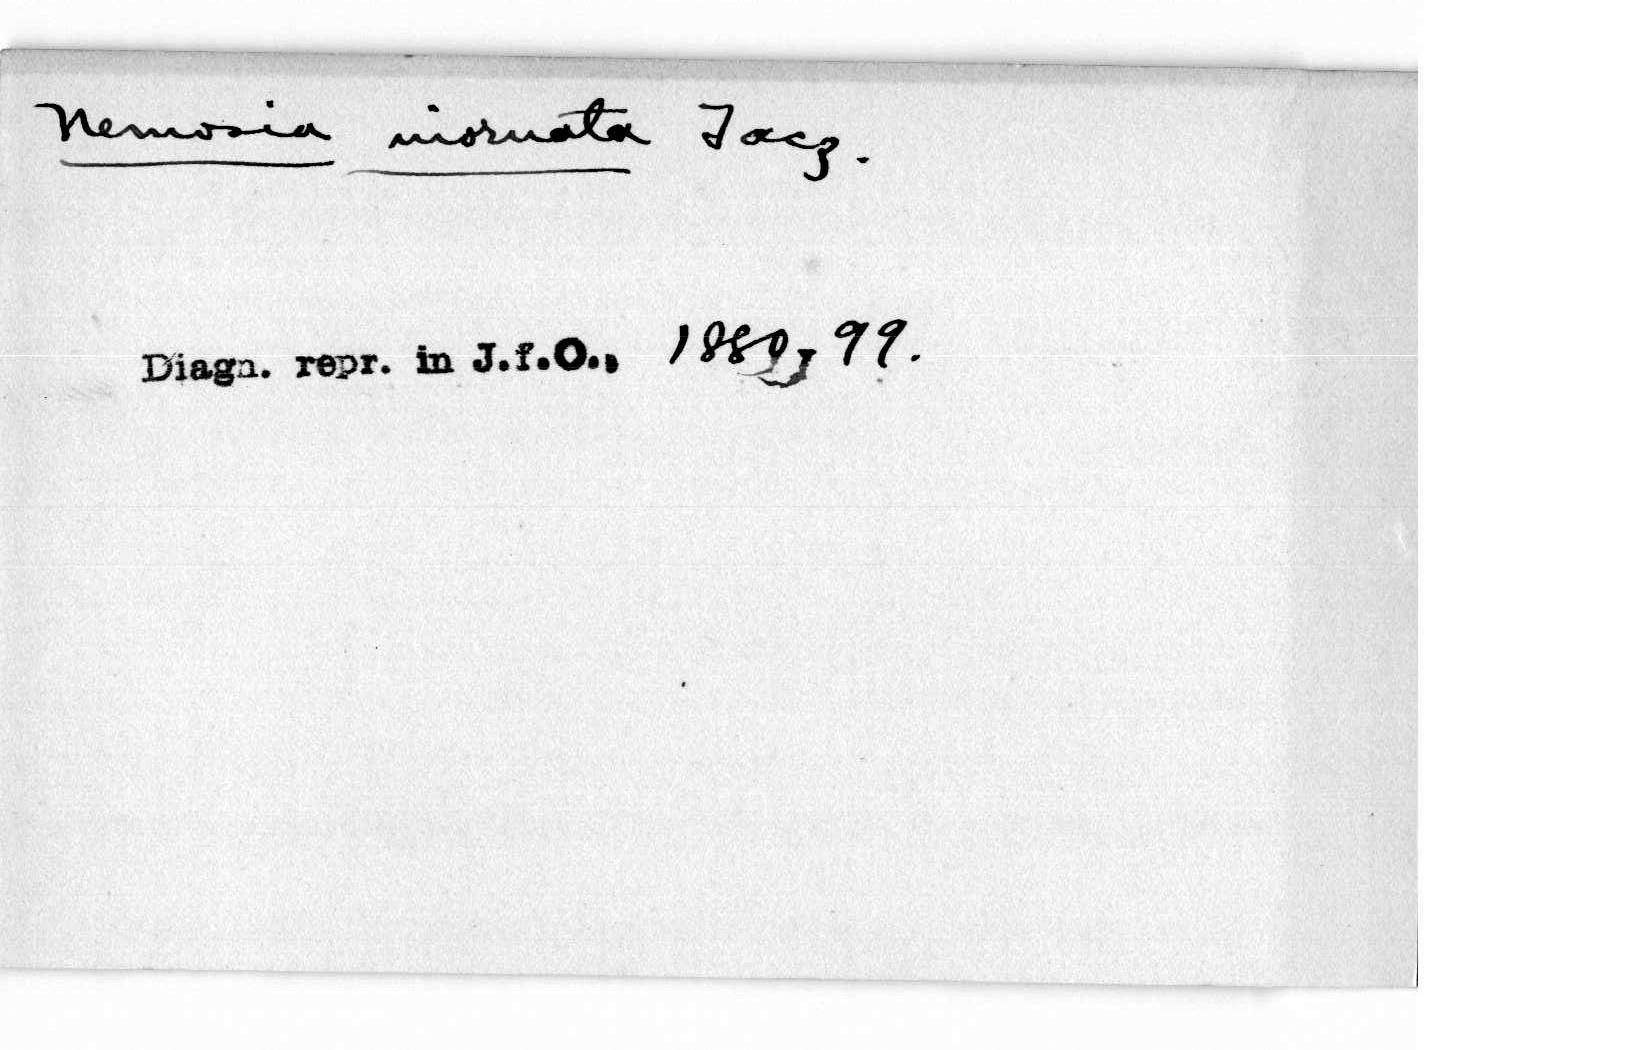 Nemosia inornata Tacz.
Diagn. repr. in J.f.O., 1880, 99.